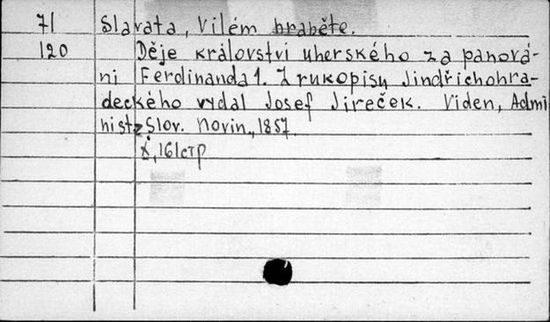 71 Slavata, Vilém hraběte.
120 Děje království uherského za panová-
ni Ferdinanda 1. Z rukopisu Jindřichohra-
deckého vydal Josef Jireček. Viden, Admi
nistr Slov. Novin, 1857.
X, 161 стр